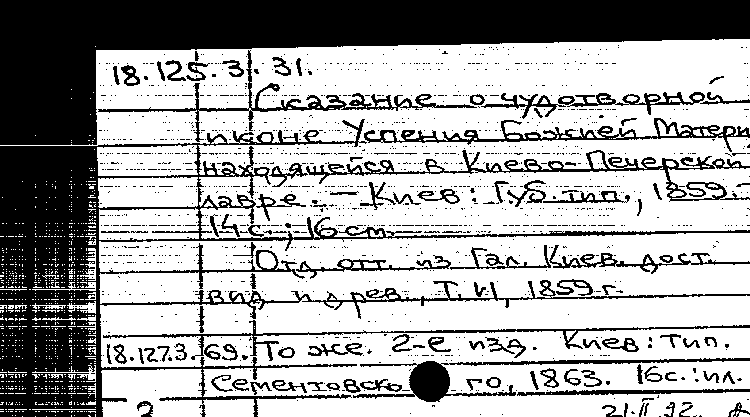 18.125.3.31.
Сказание о чудотворной
иконе Успения Божией Матери
находящейся в Киево-Печерской
лавре. — Киев: Губ. тип., 1859. -
14 с.; 16 см.
Отд. отт. из Гал. Киев. дост.
вид и древ., Т. II, 1859 г.
18.127.3.69. То же. 2-е изд. Киев: Тип.
Сементовско го, 1863. 16с.: ил.
2 21.II.92.